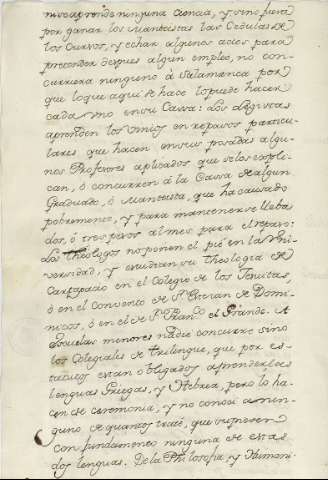 nuevo aprende ninguna Ciencia, y si no fuera
por ganar los Manteistas las Cedulas de
los Cursos, y echar algunos actos para
pretender despues algun empleo, no con-
curriera ninguno á Salamanca por
que lo que aqui se hace lo puede hacer
cada uno en su Cassa: Los Legistas
aprenden los Vinios en repasos particu-
lares que hacen en sus posadas algu-
nos Profesores aplicados que se los expli-
can, ó concurren á la Cassa de algun
Graduado, ó Manteista, que ha causado
pobremente, y para mantenerse lleba
dos, ó tres pesos al mes para el repaso:
Los Theologos no ponen el pié en la Uni-
versidad, y estudian su Theologia de
Cartapacio en el Colegio de los Jesuitas,
ó en el Convento de Sn. Estevan de Domi-
nicos, ó en el de Sn. Franco. el Grande. A
Escuelas menores nadie concurre sino
los Colegiales de trelengue, que por es-
tatutos estan obligados aprender las
lenguas Griegas, y Hebrea, pero lo ha-
cen de ceremonia, y no conocí a nin-
guno de quantos traté, que supiesen
con fundamento ninguna de estas
dos lenguas. De la Philosofia, y Humani-